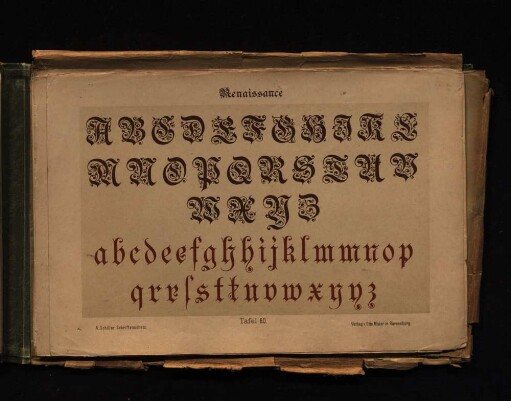 Renaissance
A B C D E F G H I K L
M N O P Q R S T U V
W X Y Z
abcdeefghhijklmmnop
qrrsſsttuvwxyyz
Tafel 60